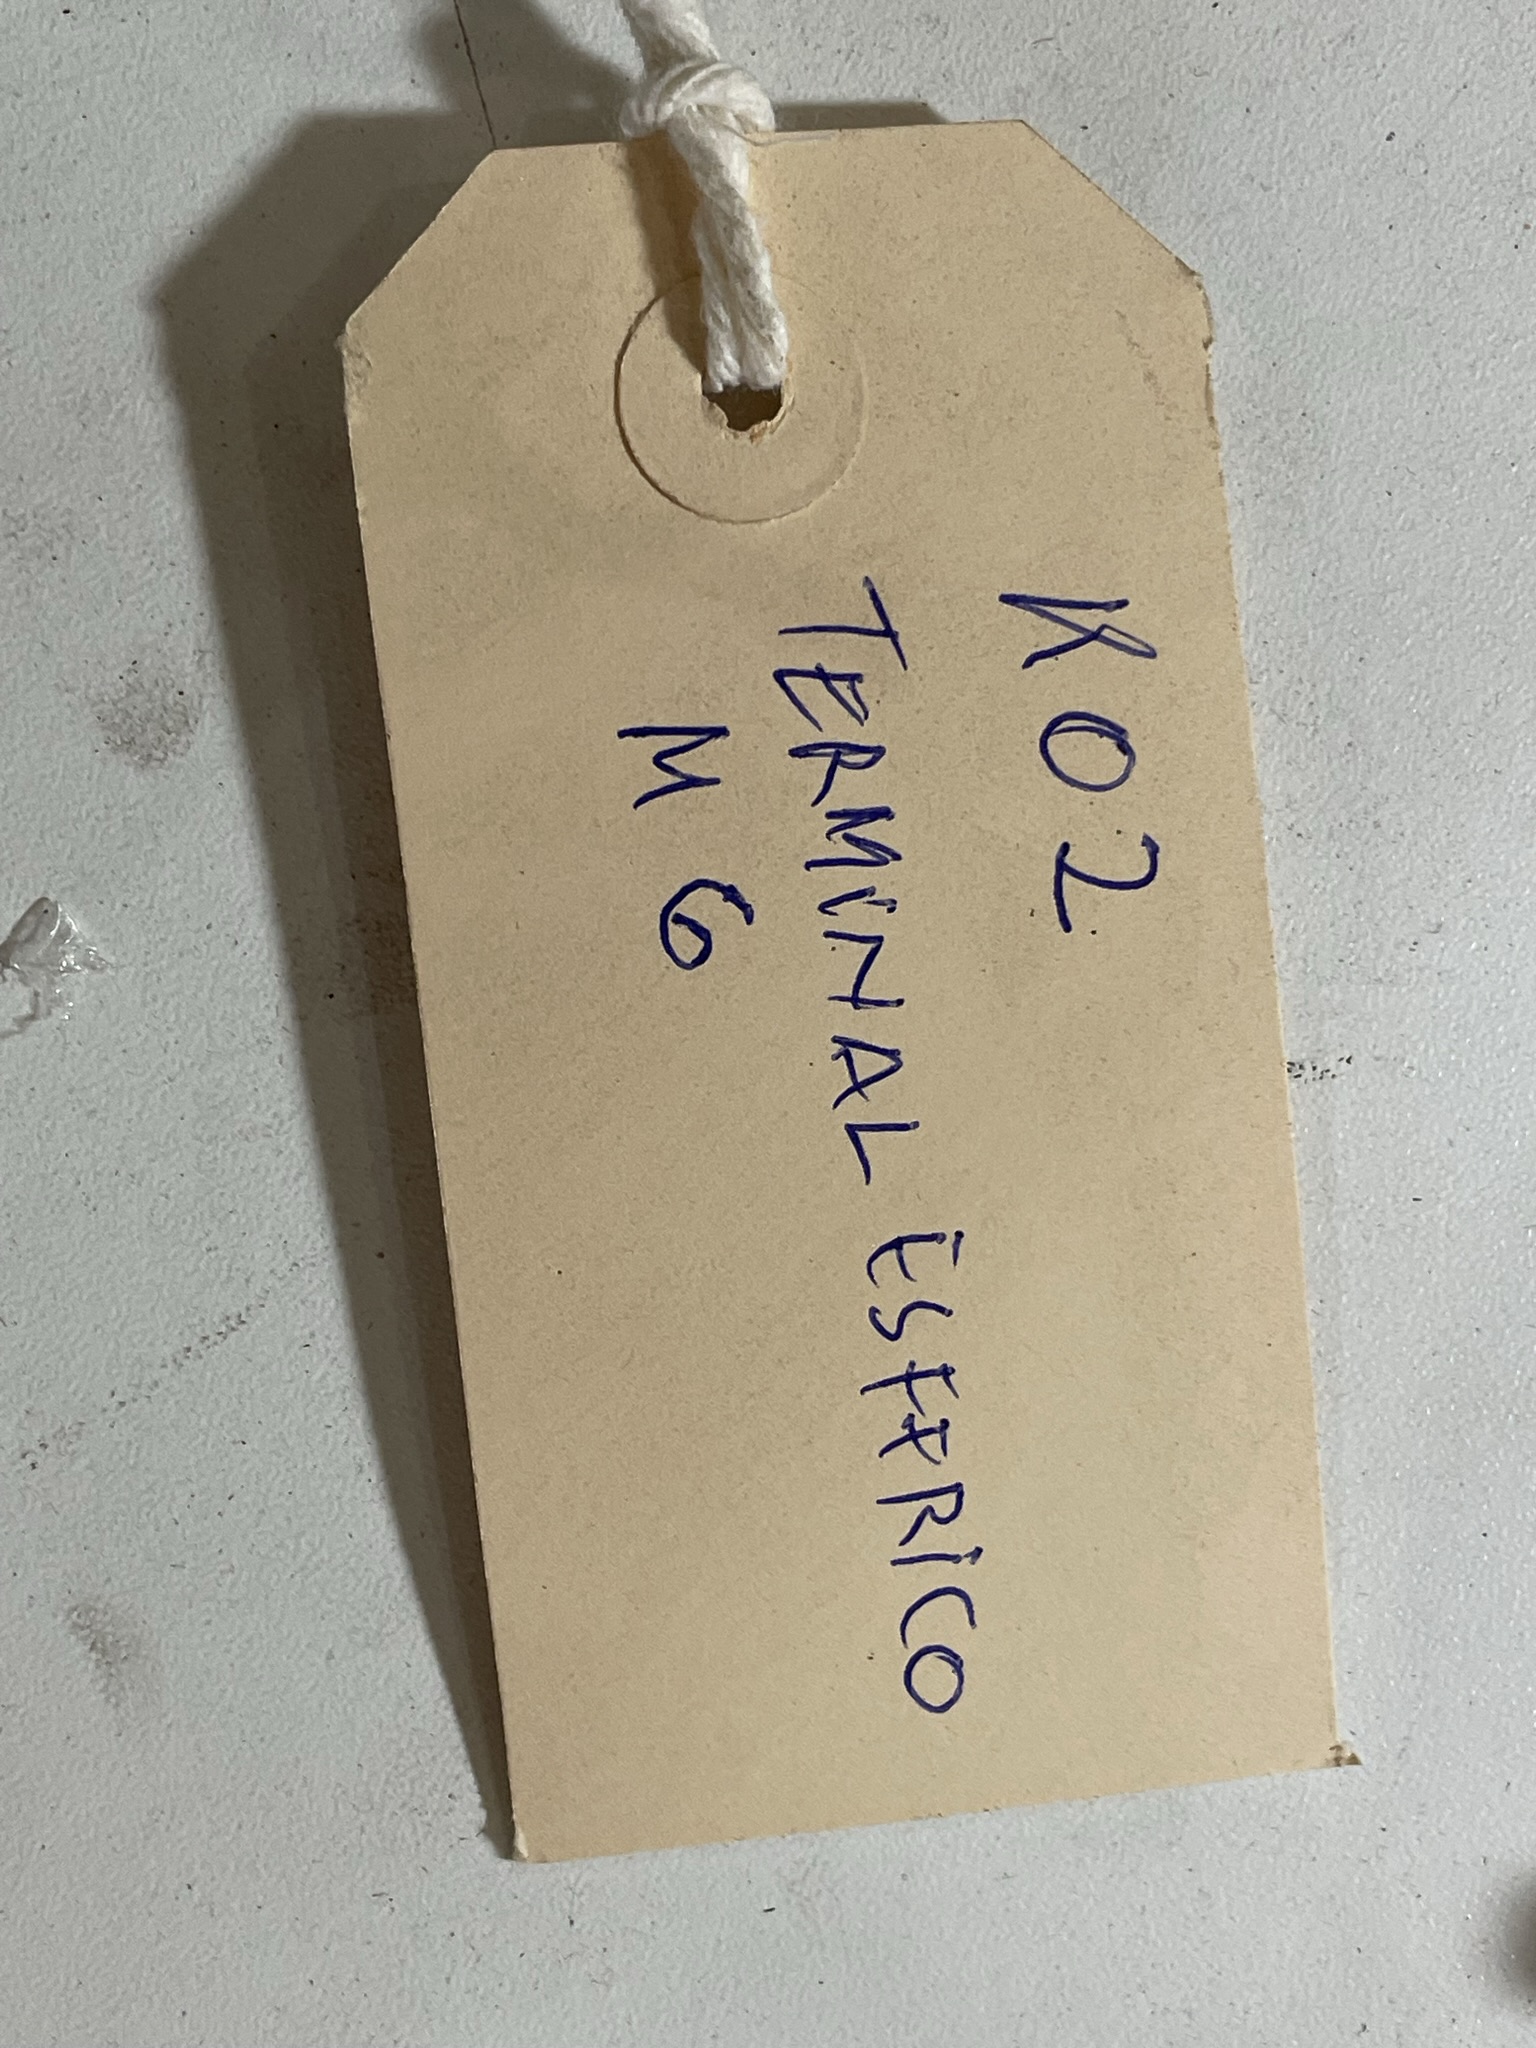 K02
TERMINAL ESFERICO
M 6